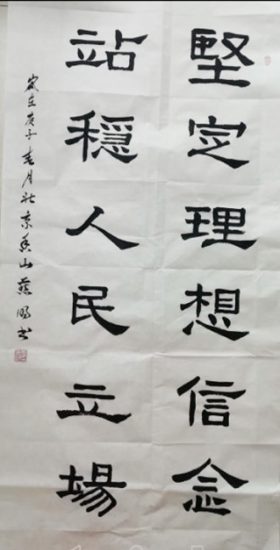 堅定理想信念
站穩人民立場
歲在庚子春月於京香山